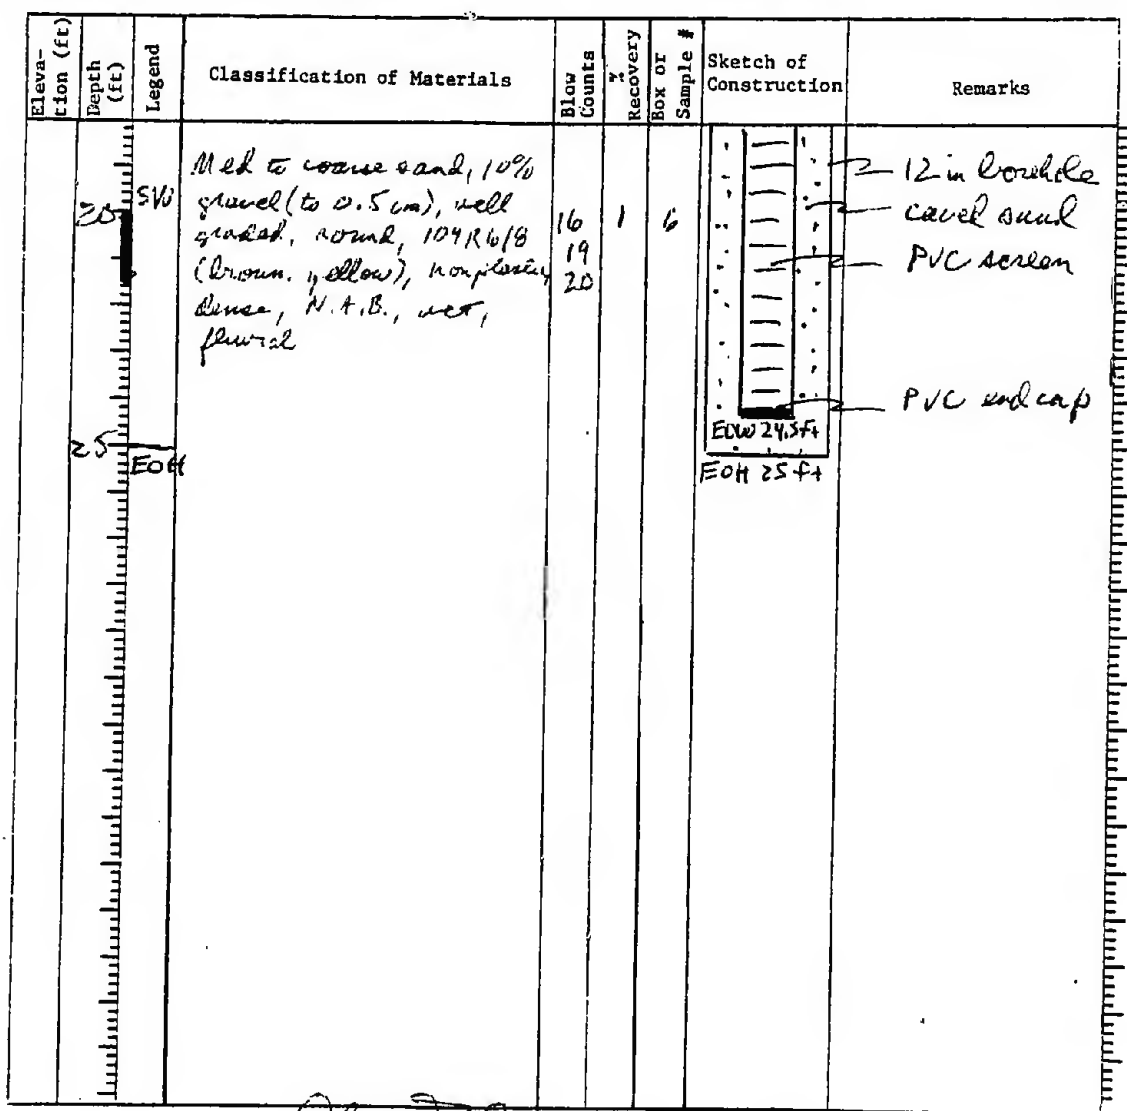 Eleva-
tion (ft)
Depth
(ft)
Legend
Classification of Materials
Blow
Counts
%
Recovery
Box or
Sample #
Sketch of
Construction
Remarks
20
SW
Med to coarse sand, 10%
gravel (to 0.5 cm), well
graded, round, 10YR6/8
(brown. yellow), nonplastic,
dense, N.A.B., wet,
fluvial
16
19
20
1
6
12 in borehole
caved sand
PVC screen
PVC end cap
25
EOH
EOW 24.5ft
EOH 25 ft